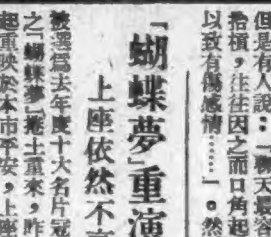 但是有人說：「聊天最容
抬槓，往往因之而口角起
以致有傷感情……」。然
「蝴蝶夢」重演
上座依然不
被選爲去年度十大名片冠
之「蝴蝶夢」捲土重來，昨
起重映於本市平安，上座